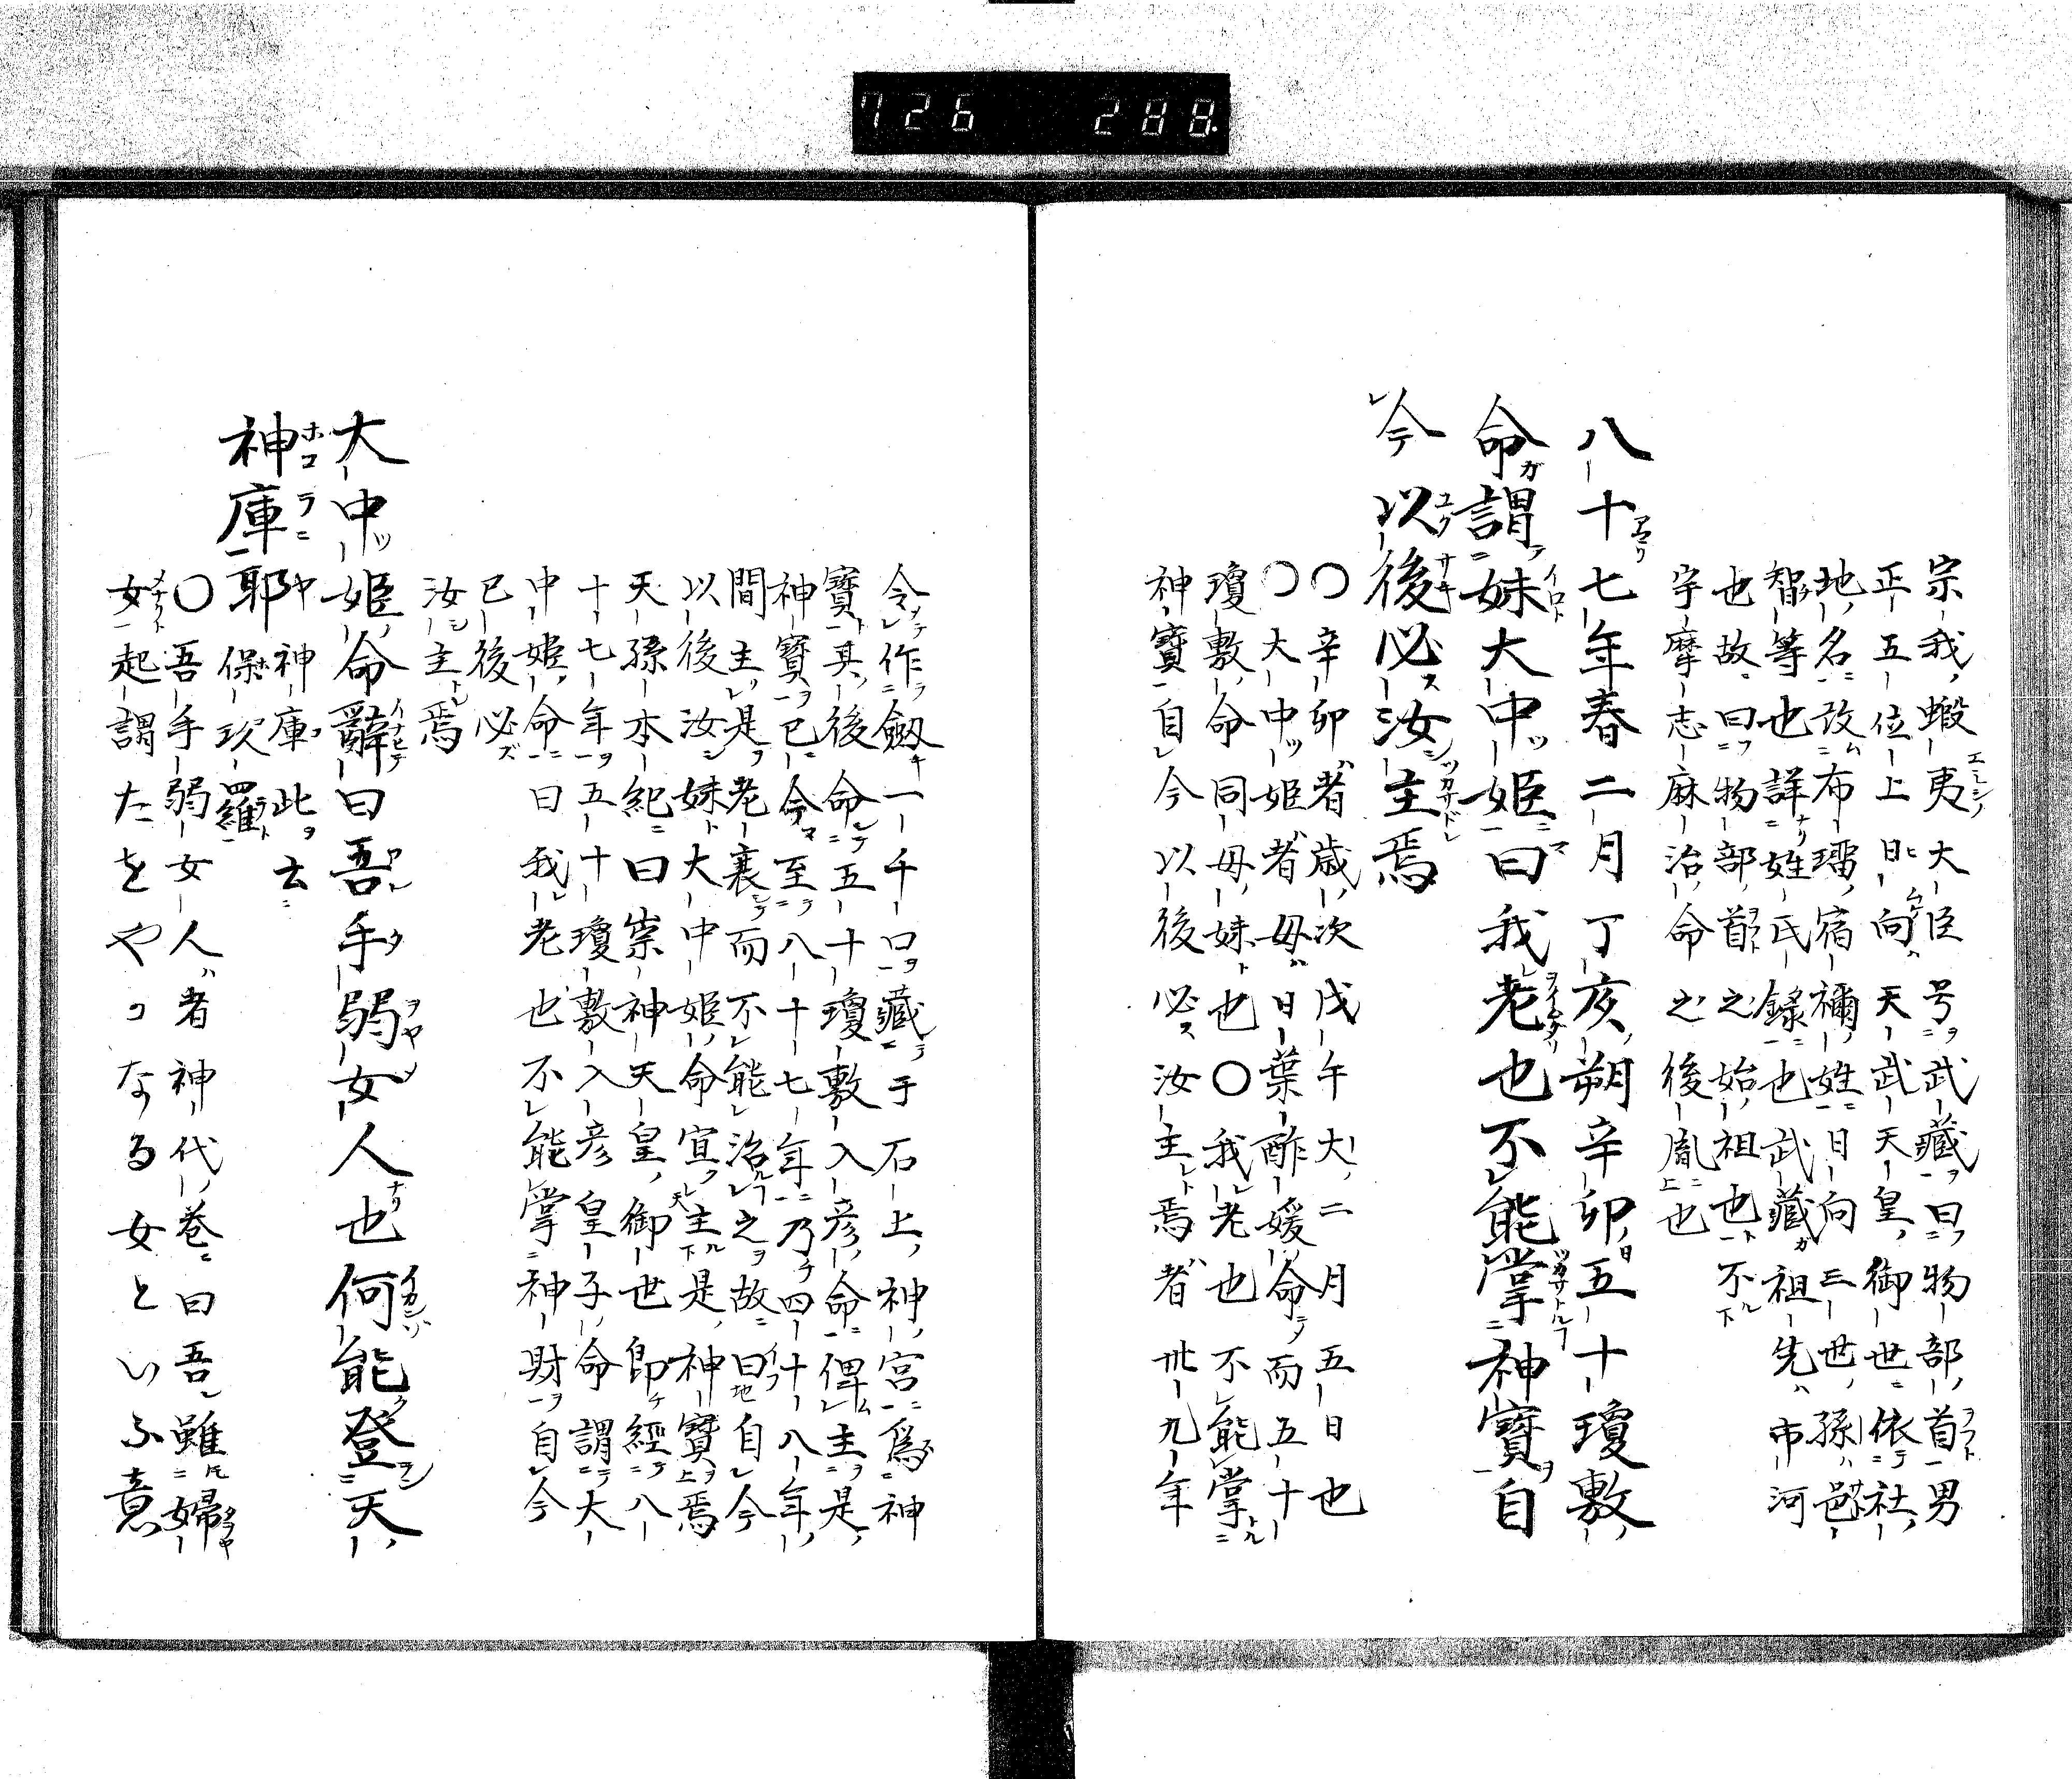 726 288
宗我蝦夷大臣号武藏曰物部首男
正五位上日向天武天皇御世依社
地名改布瑠宿禰姓日向三世孫邑
智等也詳姓氏録也武藏祖先市河
也故曰物部首之始祖也不
宇摩志麻治命之後胤也
八十七年春二月丁亥朔辛卯五十瓊敷
命謂妹大中姫曰我老也不能掌神寶自
今以後必汝主焉
〇辛卯者歳次戊午大二月五日也
〇大中姫者母日葉酢媛命而五十
瓊敷命同母妹也〇我老也不能掌
神寶自今以後必汝主焉者卅九年
令作劔一千口藏于石上神宮為神
寶其後命五十瓊敷入彦命俾主是
神寶已今至八十七年乃四十八年
間主是老衰而不能治之故曰自今
以後汝妹大中姫命宜主是神寶焉
天孫本紀曰崇神天皇御世即經八
十七年五十瓊敷入彦皇子命謂大
中姫命曰我老也不能掌神財自今
已後必
汝主焉
大中姫命辭曰吾手弱女人也何能登天
神庫耶
神庫此云
保玖羅
〇吾手弱女人者神代巻曰吾雖婦
女起謂たをやつなる女といふ意